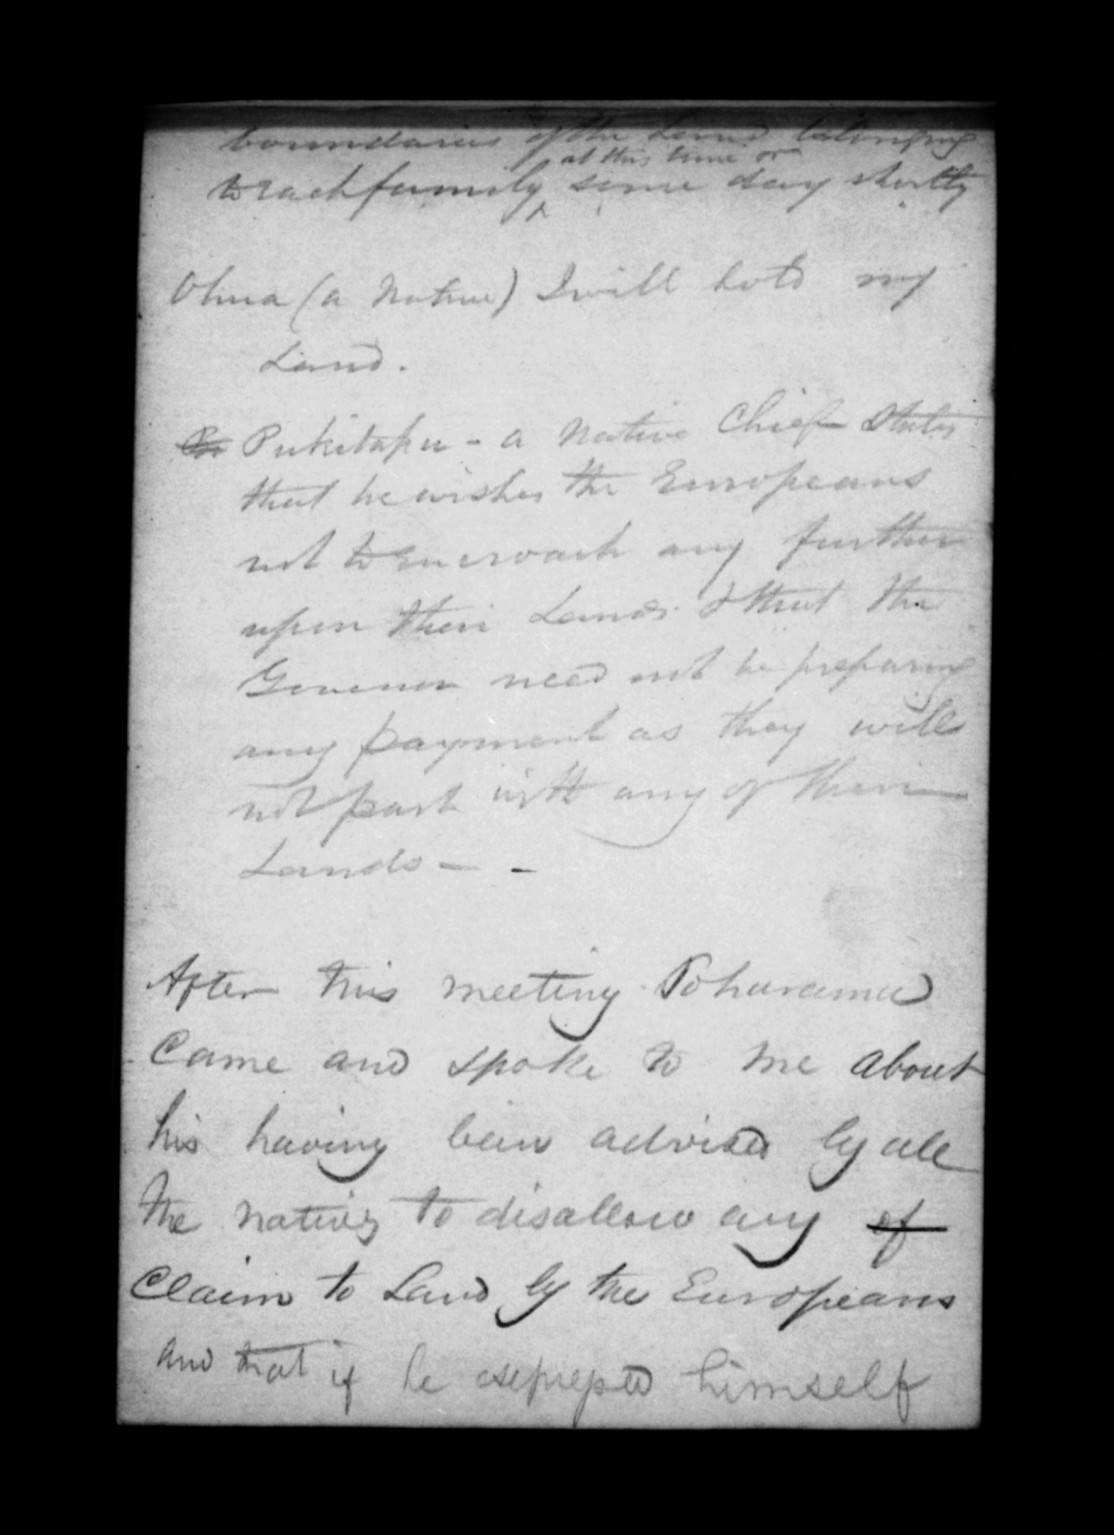 boundaries of the Land belonging
at this time or
to each family some day shortly
Ohua (a Native) I will hold my
Land.
Pukitapu - a native Chief states
that he wishes the Europeans
not to encroach any further
upon their Lands & that the
Governor need not be preparing
any payment as they will
not part with any of their
Lands - -
After this meeting Poharama
Came and spoke to me about
his having been advised by all
the natives to disallow any of
Claim to Land by the Europeans
and that if he himself